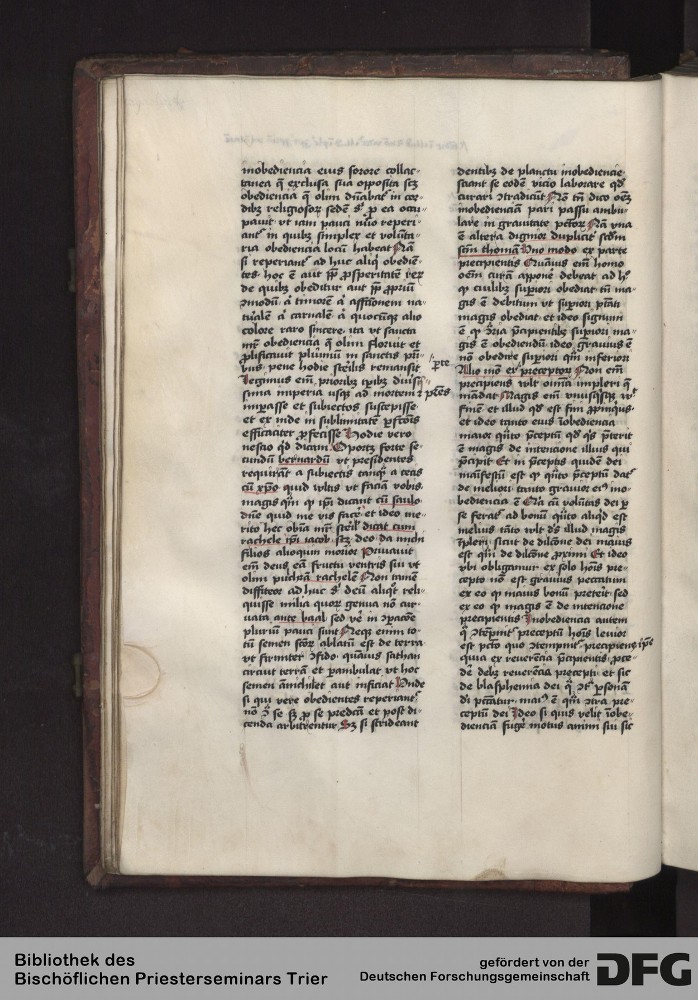 inobediencia eius sorore collac-
tanea q̄ exclusa sua opposita scz
obediencia q̄ olim dn̄abat᷑ in cor-
dibz religiosor sedē s᷑ p ea occu-
pauit vt iam pauci nūc reperi-
ant᷑ in quibz simplex et volūta-
ria obediencia locū habeat Nā
si reperiant᷑ ad huc aliq̄ obediē-
tes hoc ē aut ꝓpt᷑ ꝓsperitatē rer
de quibz obeditur aut ꝓpt᷑ ꝓpriū
ꝯmodū a᷑ timorē a᷑ affc̄tionem na-
tᷓalē a᷑ carnalē a᷑ quocūqꝫ alio
colore raro sincere ita vt sancta
mr̄ obediencia q̄ olim floruit et
ꝓlificauit plurimū in sanctis pri-
uus pene hodie sterilis remansit
Legimus em̄ prioribz tpibz
sima imperia vsqꝫ ad mortem
inpasse et subiectos suscepisse
et ex inde in sublimitatē ꝑfc̄ōis
efficaciter ꝓfecisse Hodie vero
nescio qd dicam Oportz forte se-
cundū bernardū vt presidentes
requirāt a subiectis tanqᷓ a cecis
cū xpo quid vltis vt faciā vobis
magis qm̄ qꝫ ipi dicant cū saulo
dn̄e quid me vis facē et ideo me-
rito hec obīa mr̄ sterił dicat cum
rachele ipi iacob scz deo da michi
filios alioquin morior Priuauit
em̄ deus eā fructu ventris sui vt
olim puchrā rachelē Non tamē
diffiteor ad huc s᷑ deū aliqt reli-
quisse milia quor genua nō cur-
uata ante baal sed vē in ꝯpacōe
plurium pauci sunt Neqꝫ enim to-
tū semen scōr ablatū est de terra
vt firmiter ꝯfido quāuis sathan
circuit terrā et pambulat vt hoc
semen ānichilet aut inficiat Vnde
si qui vere obedientes reperiant᷑
nō se scz ꝓ se predicā et post di-
cenda arbitrentur Sz si strideant
pcēs
dentibz de planctu inobediencie
sciant se eodē vicio laborare qd
curari ꝯtradicūt Nā tn̄ dico oēm
inobedienciā pari passu ambu-
lare in grauitate pctōr Nā vna
ē altera dignior duplicit᷑ scdm
scm thomā Vno modo ex parte
precipientis Quāuis em̄ homo
oēm curā apponē debeat ad h᷑
qꝫ cuilibz supiori obediat tn̄ ma-
gis ē debitum vt supiori ptāti
magis obediat et ideo signum
ē qꝫ ꝯtria pcipientibz supiori ma-
gis ē obediendū ideo grauius ē
nō obedire supiori qm̄ inferiori
Alio mō ex preceptor Non em̄
precipiens vult oīnia impleri q̄
mādat Magis em̄ vnusqsqꝫ vlt
finē et illud qd est fini ꝓpinqus
et ideo tanto eius īobediencia
maior qūto pceptū qd qs pterit
ē magis de intencione illius qui
pcipit Et in pceptis quidē dei
māifestū est qꝫ qūto pceptū dat᷑
de meliori tanto grauior ei᷑ ino-
bediencia ē Nā cū volūtas dei p
se ferat᷑ ad bonū qūto aliqd est
melius tāto vlt ds illud magis
īpleri sicut de dilcōne dei maius
est qm̄ de dilcōne ꝓximi Et ideo
vbi obligamur ex solo hoīs pre-
cepto nō est grauius peccatum
ex eo qꝫ maius bonū preterit sed
ex eo qꝫ magis ē de intencione
precipientis Inobediencia autem
q̄ ꝯtempnit᷑ preceptū hoīs leuior
est pctō quo ꝯtempnit᷑ precipiens ipe
quia ex reuerēcia pcipientis ꝓce-
dē debz reuerēcia precepti et sic
de blasphemia dei q̄ ꝯt᷑ psonam
di pctātur mai᷑ ē qm̄ ꝯtra pre-
ceptū dei Ideo si quis velit īobe-
dienciā fugē motus animi sui sic
Bibliothek des
Bischöflichen Priesterseminars Trier
gefördert von der
Deutschen Forschungsgemeinschaft
DFG